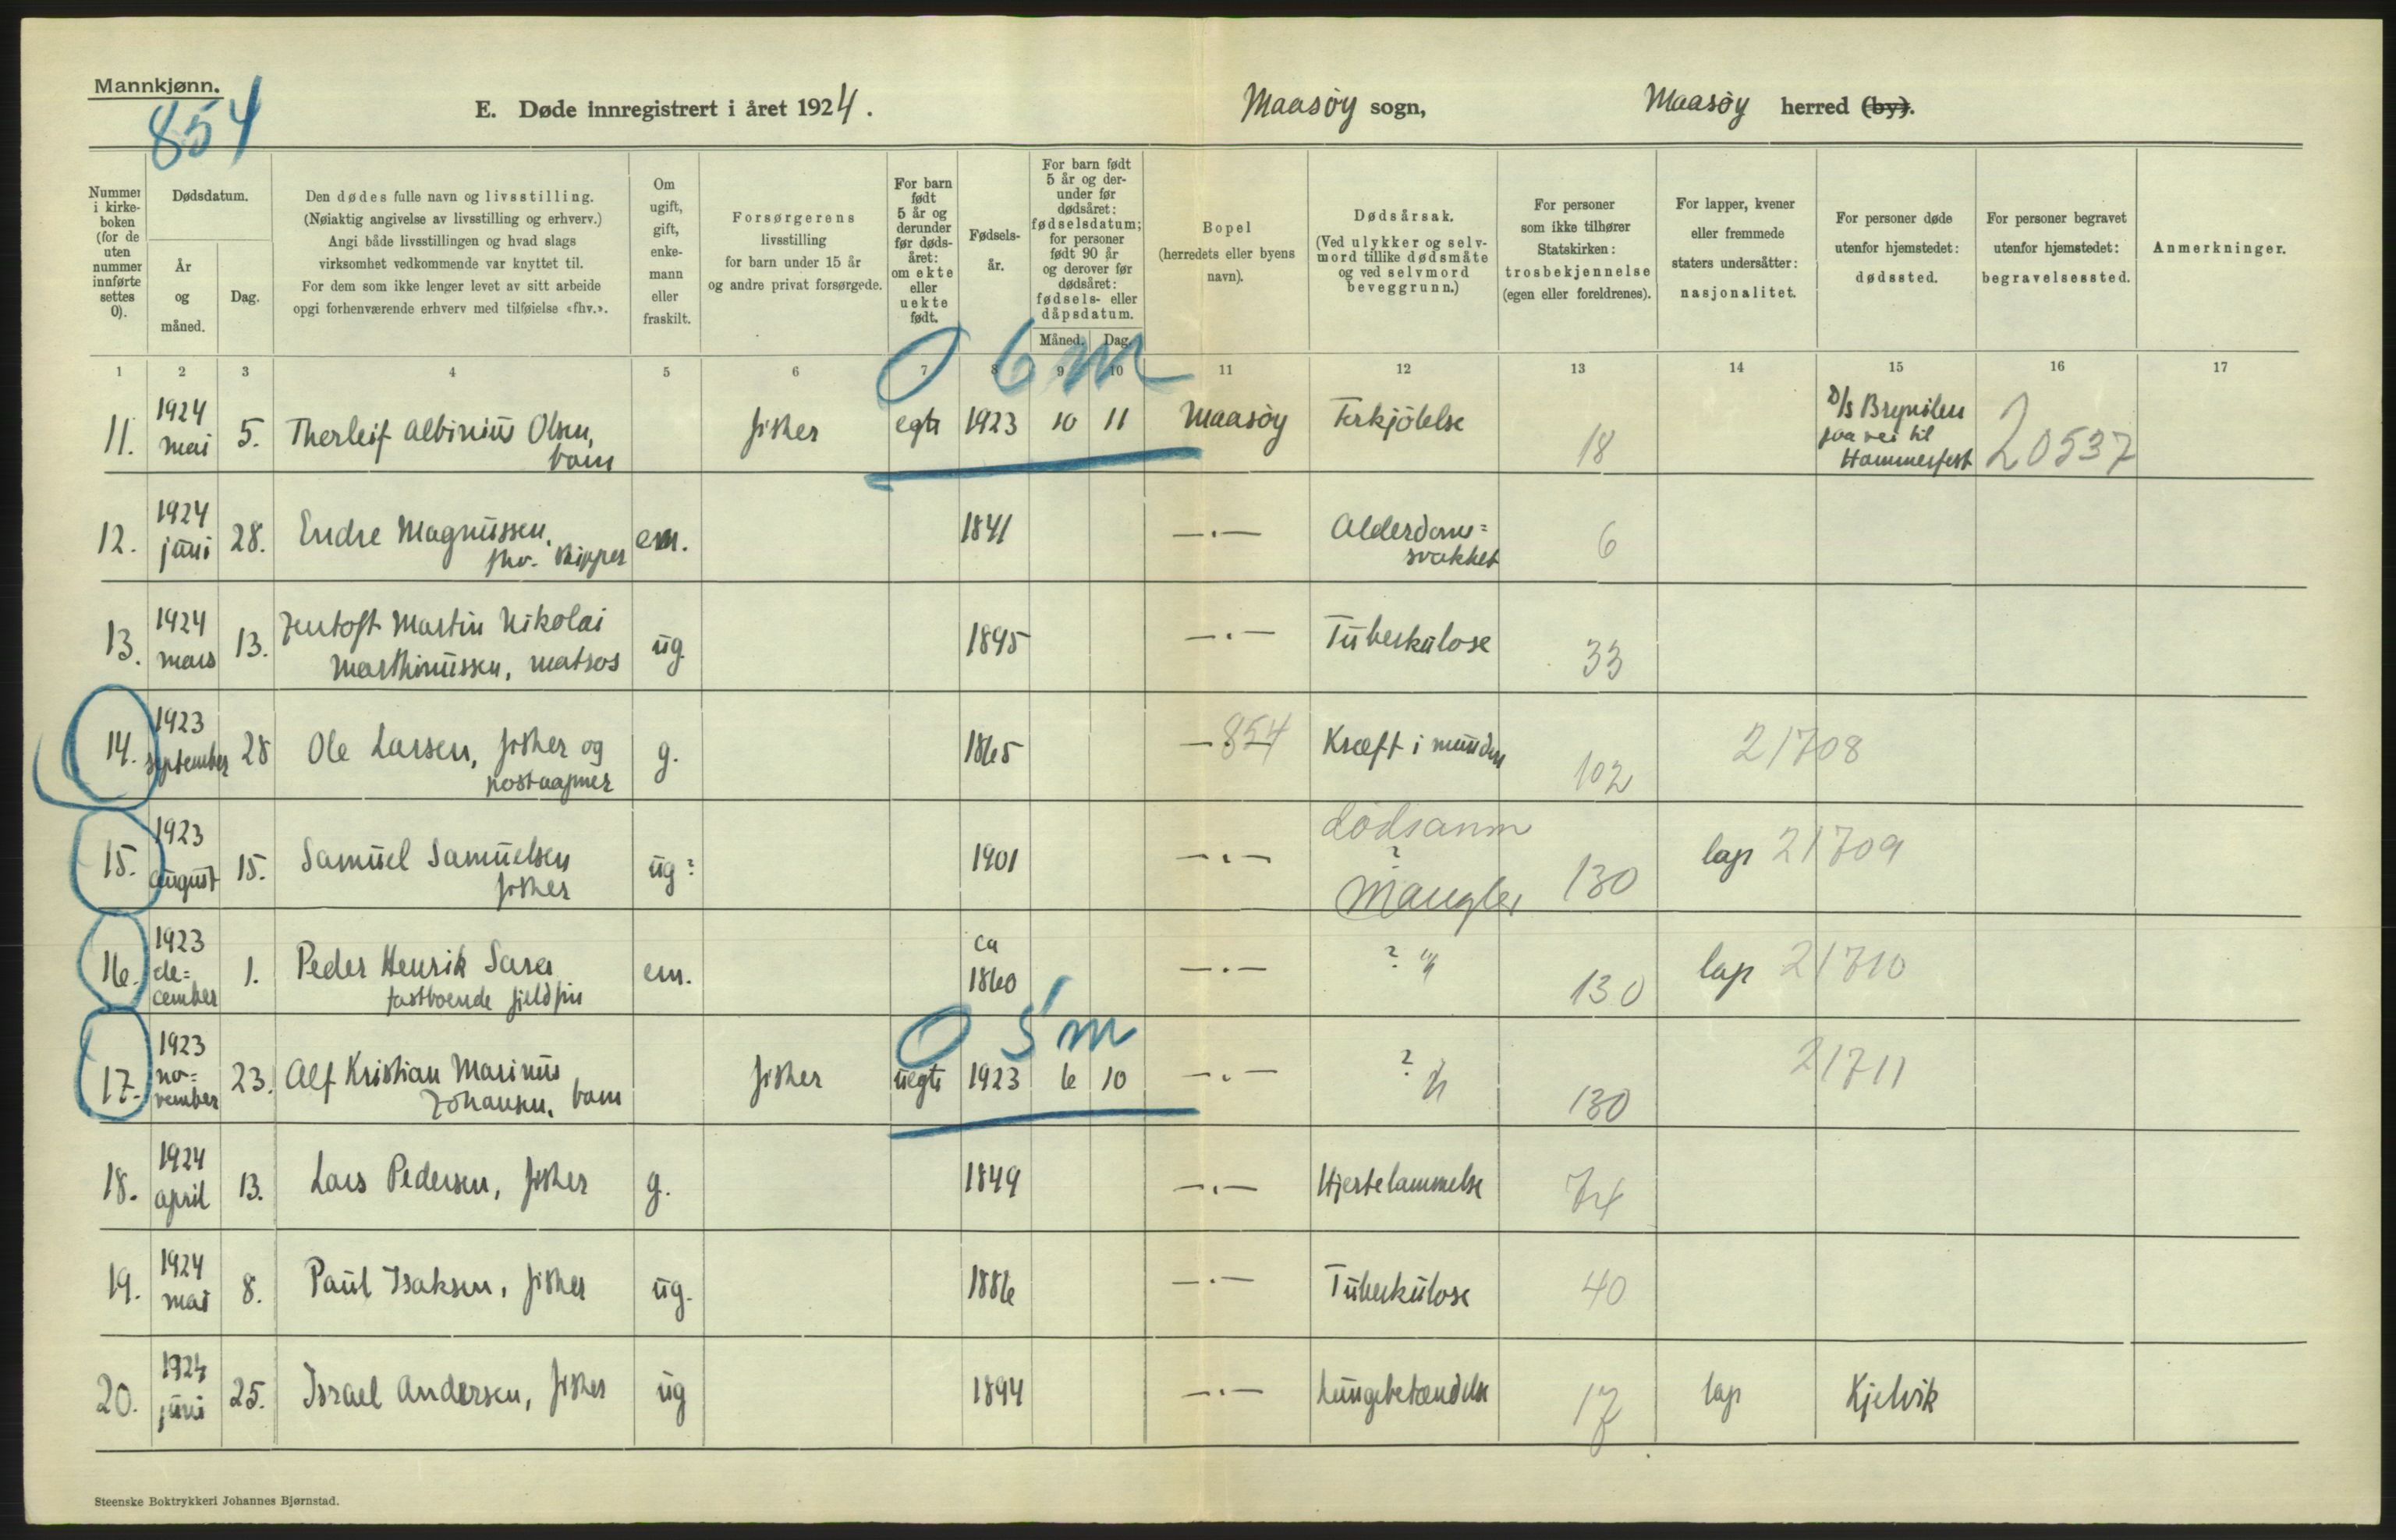 Mannkjønn.
854
E. Døde innregistrert i året 1924.
Maasøy sogn,
Maasøy herred (by).
Nummer i kirke-boken (for de uten nummer innførte settes 0).
Dødsdatum.
År og måned.
Dag.
Den dødes fulle navn og livsstilling.
(Nøiaktig angivelse av livsstilling og erhverv.)
Angi både livsstillingen og hvad slags
virksomhet vedkommende var knyttet til.
For dem som ikke lenger levet av sitt arbeide
opgi forhenværende erhverv med tilføielse «fhv.».
Om ugift, gift, enke-mann eller fraskilt.
Forsørgerens
livsstilling
for barn under 15 år
og andre privat forsørgede.
For barn født 5 år og derunder før døds-året: om ekte eller uekte født.
Fødsels-år.
For barn født 5 år og der-under før dødsåret: fødselsdatum; for personer født 90 år og derover før dødsåret: fødsels- eller dåpsdatum.
Måned. Dag.
Bopel
(herredets eller byens navn).
Dødsårsak.
(Ved ulykker og selv-mord tillike dødsmåte og ved selvmord beveggrunn.)
For personer som ikke tilhører Statskirken: trosbekjennelse (egen eller foreldrenes).
For lapper, kvener eller fremmede staters undersåtter: nasjonalitet.
For personer døde utenfor hjemstedet: dødssted.
For personer begravet utenfor hjemstedet: begravelsessted.
Anmerkninger.
1 2 3 4 5 6 7 8 9 10 11 12 13 14 15 16 17
0 6 m
11. 1924 mai 5. Therleif Albinius Olsen, barn fisher egte 1923 10 11 Maasøy Forkjølelse 18 D/S Brynilen paa vei til Hammerfest 20537
12. 1924 juni 28. Endre Magnussen, fhv. skipper em. 1841 —·— Alderdoms= svakhet 6
13. 1924 mars 13. Jentoft Martin Nikolai Marthinussen, matros ug. 1895 —·— Tuberkulose 33
14. 1923 september 28 Ole Larsen, fisker og postaapner g. 1865 —·— 854 Kræft i munden 102 21708
15. 1923 august 15. Samuel Samuelsen fisker ug? 1901 —·— dødsanm ? mangler 130 lap 21709
16. 1923 de=cember 1. Peder Henrik Sara fastboende fjeldfin em. ca 1860 —·— ? " 130 lap 21710
0 5 m
17. 1923 no=vember 23. Alf Kristian Marinus Johansen, barn fisker uegte 1923 6 10 —·— ? " 130 21711
18. 1924 april 13. Lars Pedersen, fisker g. 1849 —·— Hjertelammelse 74
19. 1924 mai 8. Paul Isaksen, fisker ug. 1886 —·— Tuberkulose 40
20. 1924 juni 25. Israel Andersen, fisker ug 1894 —·— Lungebetændelse 17 lap Kjelvik
Steenske Boktrykkeri Johannes Bjørnstad.